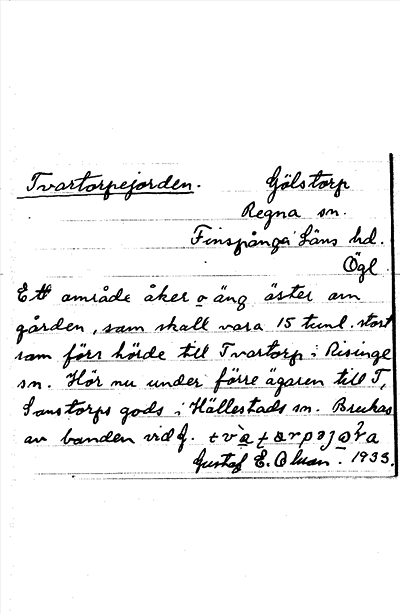 Tvartorpejorden.
Gölstorp
Regna sn.
Finspånga Läns hd.
Ögl
Ett område åker o äng öster om
gården, som skall vara 15 tunl. stort
som förr hörde till Tvartorp i Risinge
sn. Hör nu under förre ägaren till T,
Sonstorps gods i Hällestads sn. Brukas
av bonden vid G.
Gustaf E. Olsson. 1933.